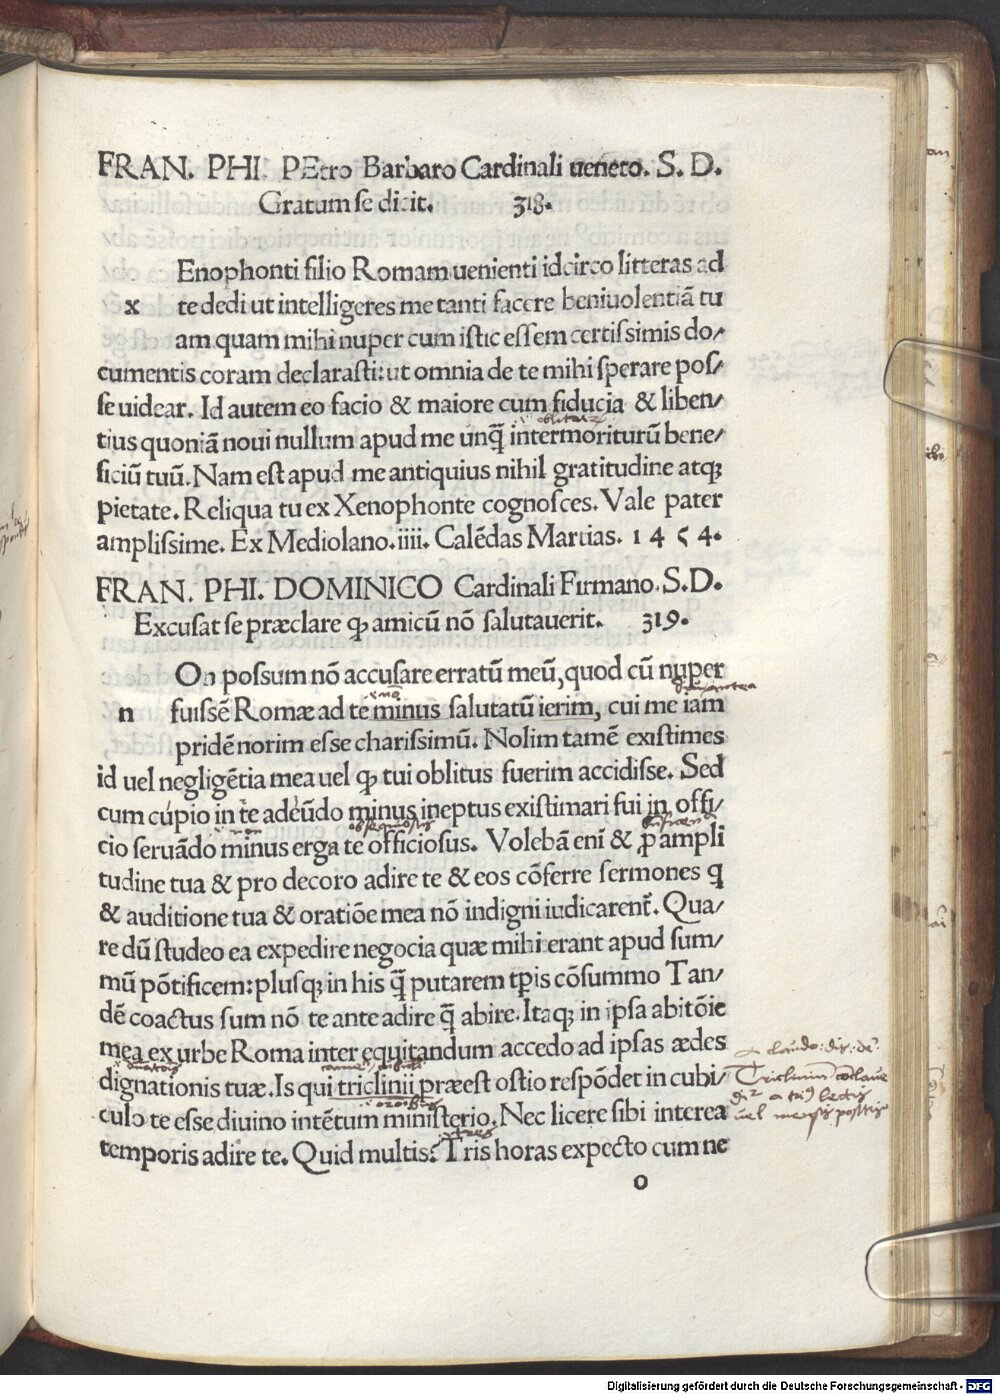 FRAN. PHI. PEtro Barbaro Cardinali ueneto. S. D.
Gratum se dicit. 318.
Enophonti filio Romam uenienti idcirco litteras ad
x te dedi ut intelligeres me tanti facere beniuolentiā tu
am quam mihi nuper cum istic essem certissimis do/
cumentis coram declarasti: ut omnia de te mihi sperare pos/
se uidear. Id autem eo facio & maiore cum fiducia & liben/
tius quoniā noui nullum apud me unq̄ intermoriturū bene/
ficiū tuū. Nam est apud me antiquius nihil gratitudine atqꝫ
pietate. Reliqua tu ex Xenophonte cognosces. Vale pater
amplissime. Ex Mediolano. iiii. Calēdas Martias. 1454.
FRAN. PHI. DOMINICO Cardinali Firmano. S. D.
Excusat se præclare ꝙ amicū nō salutauerit. 319.
On possum nō accusare erratū meū, quod cū nuper
n fuissē Romæ ad te minus salutatū ierim, cui me iam
pridē norim esse charissimū. Nolim tamē existimes
id uel negligētia mea uel ꝙ tui oblitus fuerim accidisse. Sed
cum cupio in te adeūdo minus ineptus existimari fui in offi/
cio seruādo minus erga te officiosus. Volebā eni & ꝓ ampli
tudine tua & pro decoro adire te & eos cōferre sermones q
& auditione tua & oratiōe mea nō indigni iudicarent̄. Qua/
re dū studeo ea expedire negocia quæ mihi erant apud sum/
mū pōtificem: plusqꝫ in his q̄ putarem tp̄is cōsummo Tan/
dē coactus sum nō te ante adire q̄ abire. Itaqꝫ in ipsa abitōie
mea ex urbe Roma inter equitandum accedo ad ipsas ædes
dignationis tuæ. Is qui triclinii præest ostio respōdet in cubi/
culo te esse diuino intētum ministerio. Nec licere sibi interea
temporis adire te. Quid multis? Tris horas expecto cum ne
o
Digitalisierung gefördert durch die Deutsche Forschungsgemeinschaft - DFG